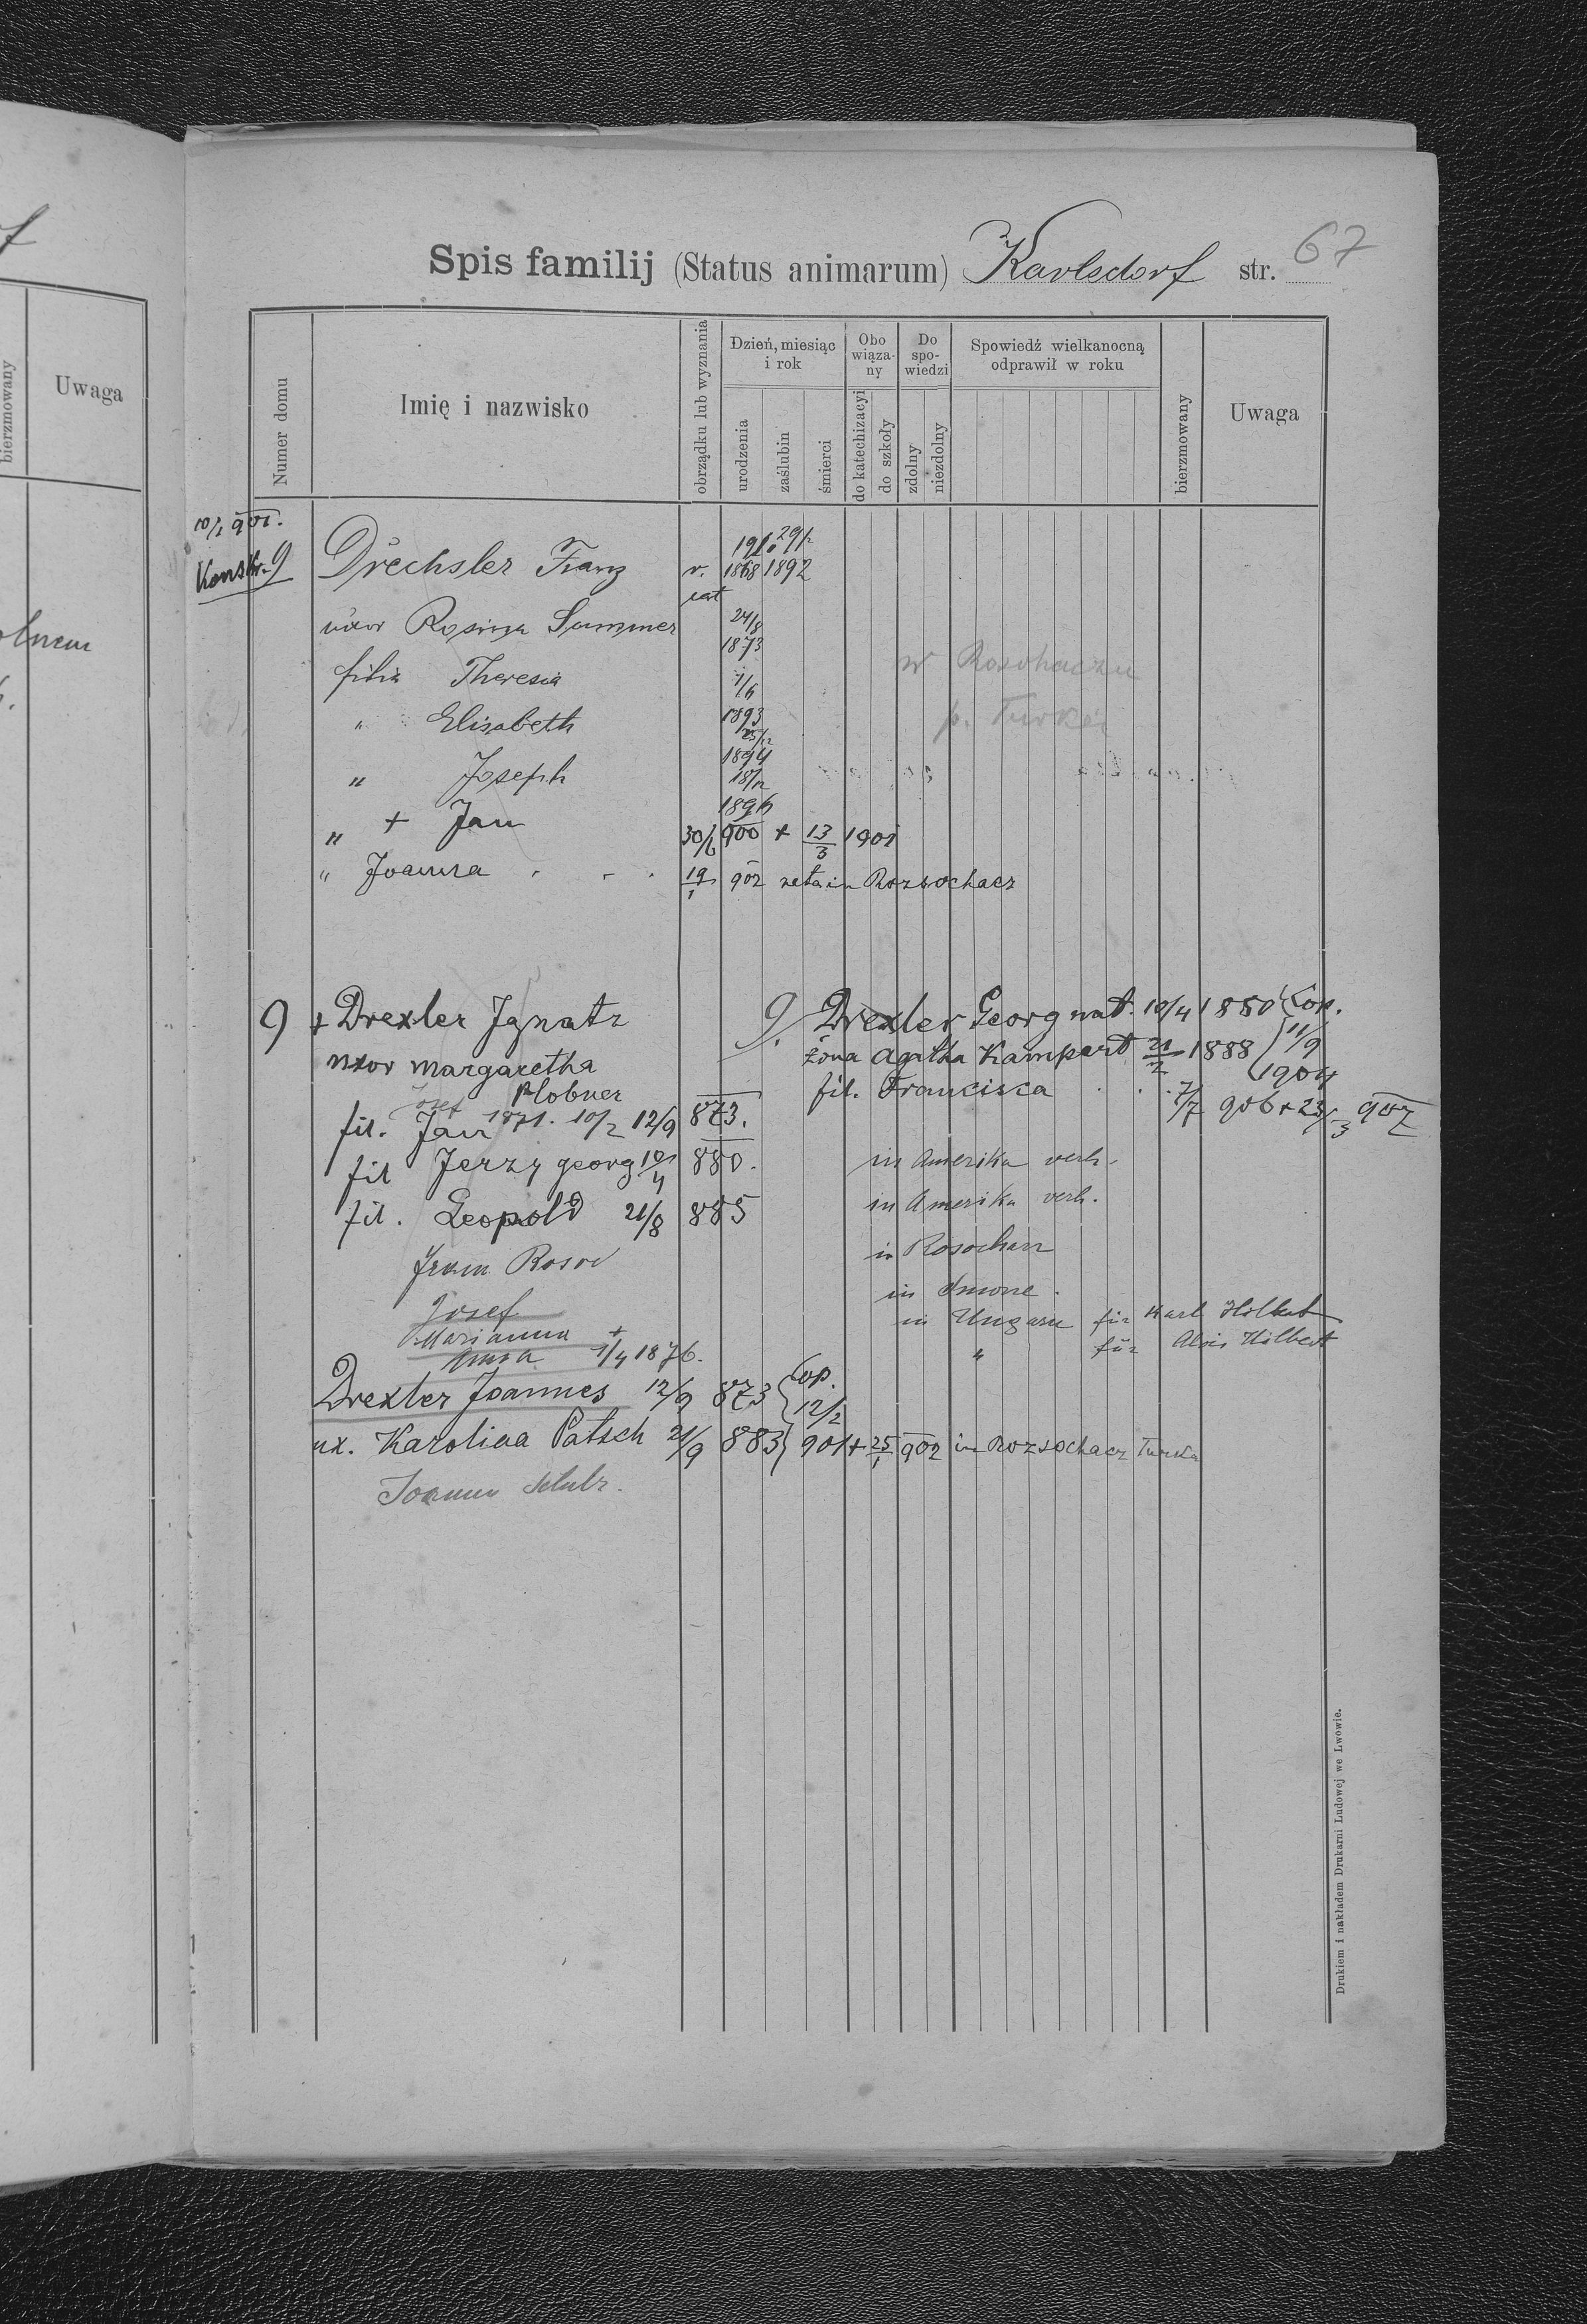 Uwaga
bierzmowany
Spis familij (Status animarum) Karlsdorf str. 67
Numer domu
Imię i nazwisko
obrządku lub wyznania
Dzień, miesiąc i rok
urodzenia
zaślubin
śmierci
Obowiązany
do katechizacyi
do szkoły
Do spowiedzi
zdolny
niezdolny
Spowiedź wielkanocną odprawił w roku
bierzmowany
Uwaga
10/1 901.
9 Drechsler Franz r. 1868 1892
uxor Rosina Summer 24/8 1873
filia Theresia 1/6 1893
w Rosohaczu
" Elisabeth 25/12 1894
p. Turka
" Joseph 18/12 1896
" + Jan 30/6 900 + 13/3 1901
" Joanna . . . 19/1 902 nata in Rozsochacz
9 + Drexler Ignatz
uxor Margaretha
Plobner
Josef 1871. 10/2
fil. Jan 12/9 873.
fil Jerzy Georg 10/4 880.
fil. Leopold 21/8 885
9. Drexler Georg nat. 10/4 1880 Cop.
żona Agatha Kampert 21/2 1888 11/9 1904
fil. Francisca . . . 7/7 906 + 23/3 907
in Amerika verh.
in Amerika verh.
in Rosochacz
in Smorze.
in Ungarn für Karl Hilbert
" für Alois Hilbert
Josef
Marianna +
Anna 1/4 1876.
Drexler Joannes 12/9 873 Cop. 12/2
ux. Karolina Patsch 21/9 883 901 + 25/1 902 in Rozsochacz Turka
Drukiem i nakładem Drukarni Ludowej we Lwowie.